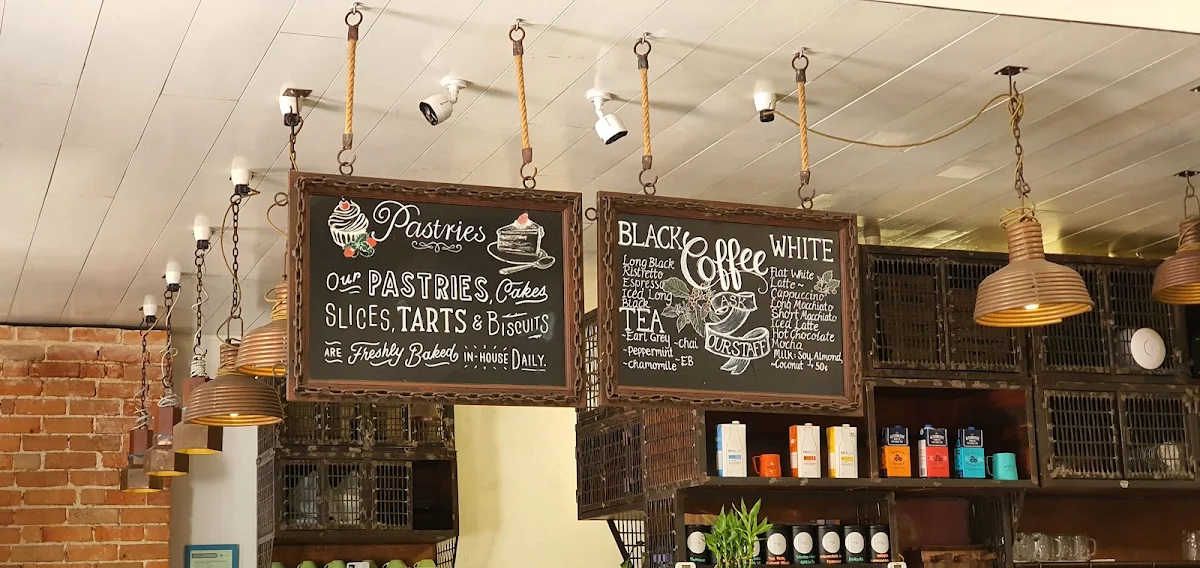 Pastries
Our PASTRIES, Cakes
SLICES, TARTS & BISCUITS
ARE Freshly Baked IN-HOUSE DAILY.
BLACK
Coffee
WHITE
Long Black
Ristretto
Espresso
Iced Long
Black
TEA
~Earl Grey
~peppermint
~chamomile
~chai
~EB
ASK
OUR STAFF
Flat White
Latte ~
Cappuccino
Long Macchiato
Short Macchiato
Iced Latte
Hot Chocolate
Mocha
Milk: Soy, Almond,
~Coconut → 50¢